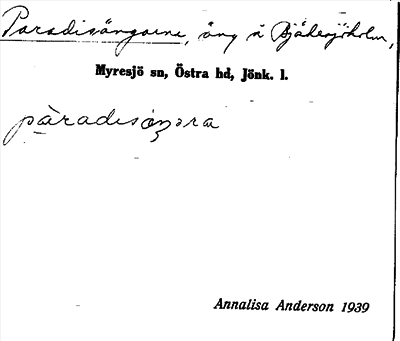 Paradisängarne, äng å Bjäkersjöholm,
Myresjö sn, Östra hd, Jönk. l.
pàradisäŋəra
Annalisa Anderson 1939